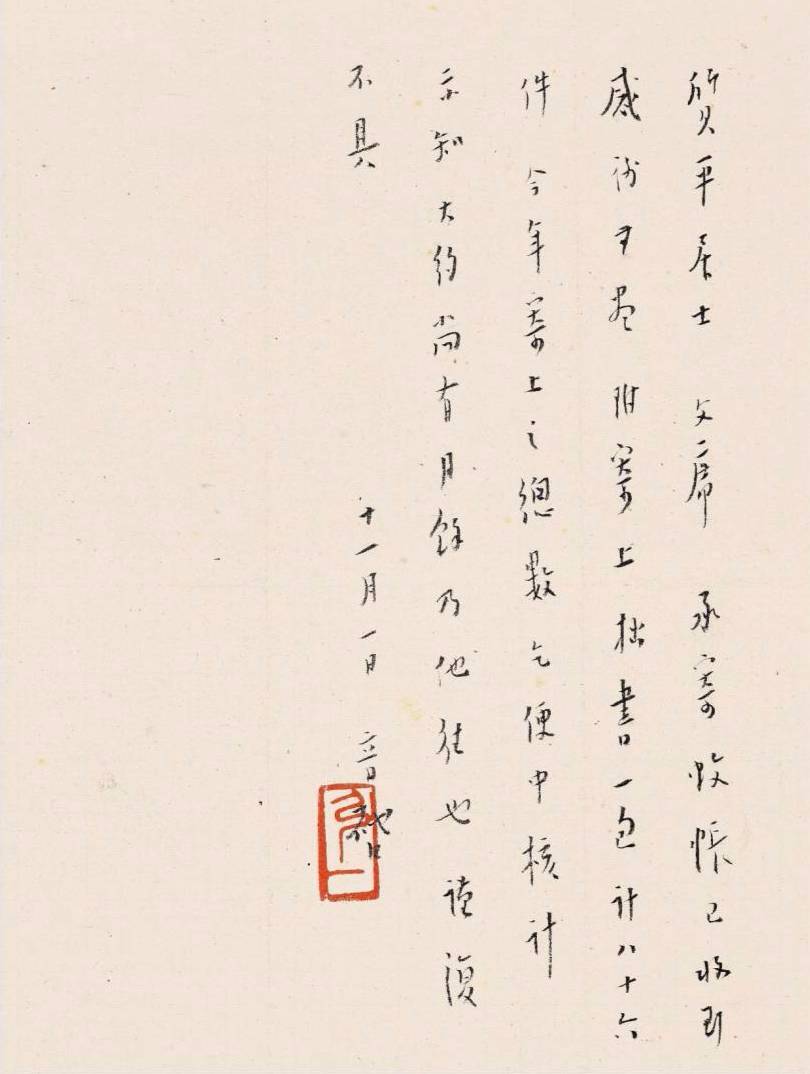 質平居士 文席 承寄蚊帳已收到
感謝不盡 附寄上拙書一包計八十六
件 今年寄上之總數乞便中核計
示知大約尚有月餘乃他往也 謹復
不具
十一月一日 音啓